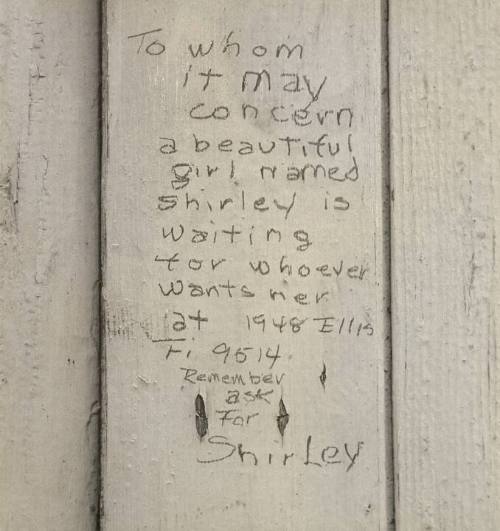 To whom
it may
concern
a beautiful
girl named
shirley is
waiting
for whoever
wants her
at 1948 Ellis
Fi 9514
Remember
ask
For
Shirley